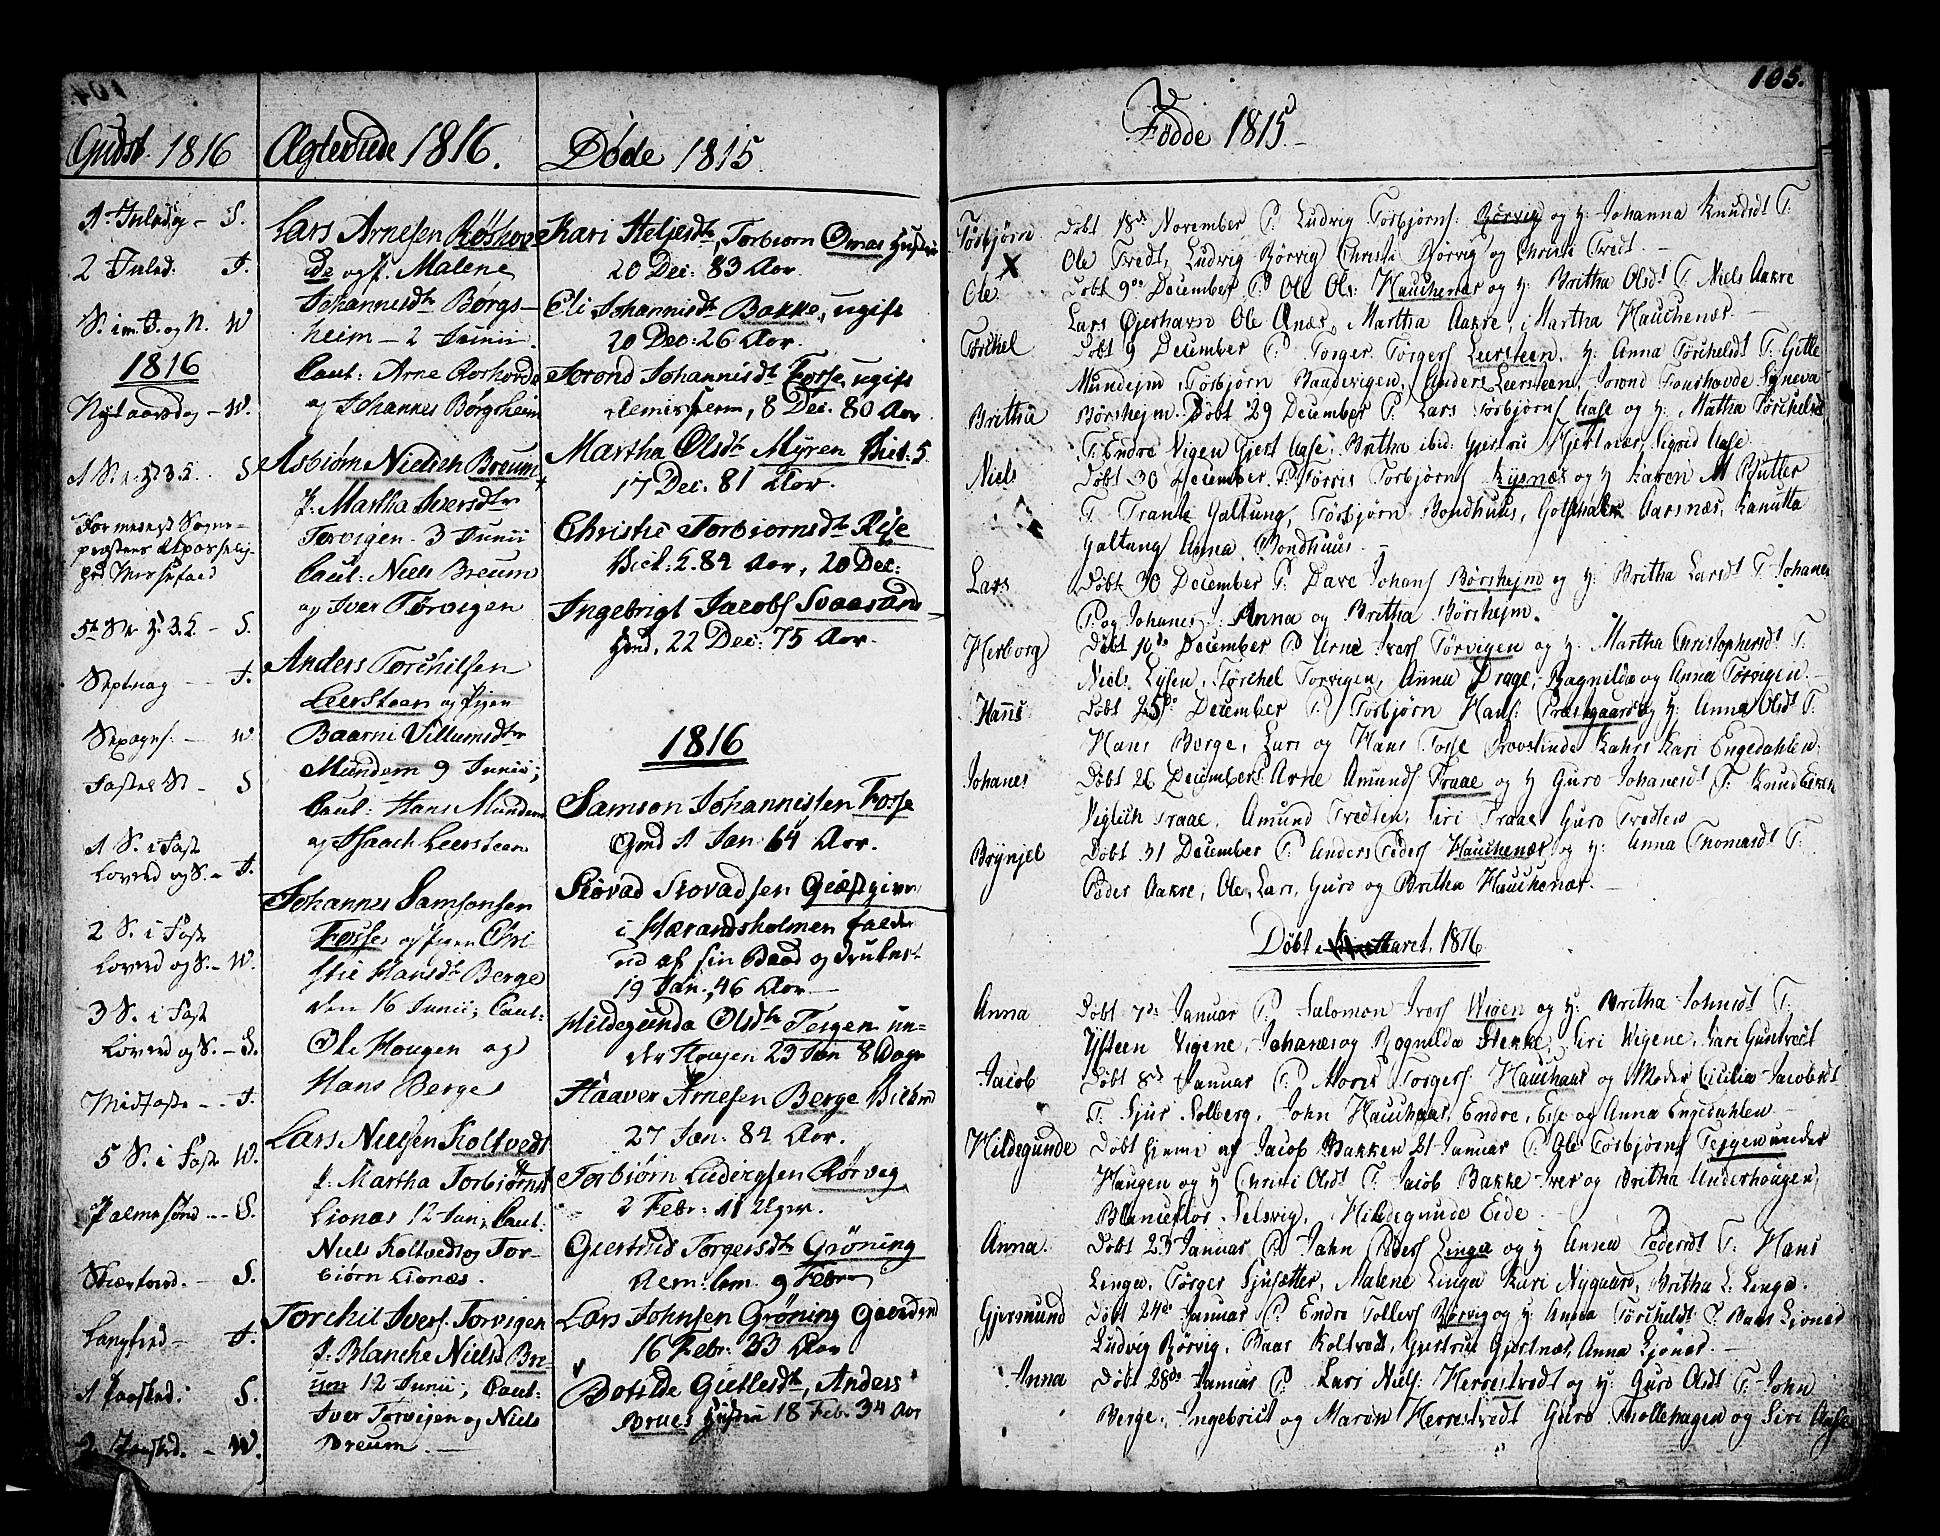 104
Gudst. 1816
1. Juledag - S.
2 Juled: J.
S. im. J. og N. W
1816
Nytaarsdag - W.
1 S. e. H 3 K. S
5te S. e. H. 3 K. - S.
Septuag - J.
Sexages: - W
Fastel S. - S
1 S. i Fast
Loverd og S. - J.
2 S. i Fast
Loverd og S. - W.
3 S. i Fast
Loverd og S. - S.
Midfaste - J.
5 S. i Faste W.
Palmesønd - S.
Skiærtord. - S.
Langfred - J.
1 Paasked: S.
2 Paasked. - W.
Ægteviede 1816.
Lars Arnesen Røshov-
de og P. Malene
Johannesdtr Børgs-
heim - 2 Junii.
Caut: Arne Roshovde
og Johannes Børgsheim
Asbiørn Nielsen Breum
P. Martha Iversdtr
Torvigen 3 Junii
Caut: Niels Breum
og Iver Tørvigen
Anders Torchilsen
Leersteen og Pigen
Baarni Villumsdtr
Mundem 9 Junii;
Caut: Hans Mundem
og Isaach Leersteen
Johannes Samsonsen
Fosse og Pigen Chri-
stie Hansdtr Berge
den 16 Junii; Caut:
Ole Hougen og
Hans Berge
Lars Nielsen Koltvedt
P. Martha Torbiørnsd
Lionæs 12 Jun; Caut:
Niels Koltvedt og Tor-
biørn Lionæs.
Torchil Ivers. Torvigen
P. Blanche Nielsd Bre-
um 12 Junii; Caut:
Iver Torvigen og Niels
Breum.
Døde 1815.
Kari Heljesdtr, Torbiørn Omas Hustru
20 Dec: 83 Aar.
Eli Johannisdtr Bakke, ugift
20 Dec: 26 Aar.
Jorond Johannisdtr Fosse ugift
Almissem, 8 Dec: 80 Aar
Martha Olsdtr Myren Vict: 5.
17 Dec: 81 Aar.
Christie Torbiornsdtr Rise
Vict: 2. 84 Aar, 20 Dec:
Ingebrigt Jacobs Svaasand
Gmd, 22 Dec: 75 Aar.
1816
Samson Johannissen Fosse
Gmd 1 Jan: 64 Aar.
Siovad Siovadsen Giæstgiver
i Herandsholmen falden
ud af sin Baad og druknet
19 Jan., 46 Aar
Hildegunda Olsdtr Teigen un-
der Hougen 23 Jan 8 Dage
Haaver Arnesen Berge Vict
27 Jan: 84 Aar.
Torbiørn Ludvigsen Rørvig
2 Febr: 11 Uger.
Giertrud Torgersdtr Grøning
Alm: lem. 9 Febr
Lars Johnsen Grøning Gaardmd
16 Febr: 33 Aar
Botilde Gietlesdtr, Anders
Brues Hustru 18 Febr. 34 Aar
105.
Fødde 1815.
Torbjørn Døbt 18de November P. Ludvig Torbjørns: Rørvig og H: Johanna Knudsdt T.
Ole Tredt, Ludvig Rørvig Christi Rørvig og Christi Tredt.
Ole Døbt 9de December P. Ole Ols: Hauchenæs og H: Britha Olsdt T. Niels Aakre
Lars Øjerhavn Ole Anæs, Martha Aakre, Martha Hauchenæs.
Torchel Døbt 9 December P. Torger Torgers Leersteen, H: Anna Torchelsdt T. Gitle
Mundejm, Torbjørn Baadevigen, Anders Leersteen, Jorond Fonshovde Syneva
Børshejm.
Britha Døbt 29 December P. Lars Torbjørns Aase og H: Matha Torchelsdt
T. Endre Vigen Gjert Aase, Britha ibid: Gjertru Hjertnæs, Sigrid Aase.
Niels Døbt 30 December. P. Torris Torbjørns Rysnæs og H Karen M. Rutter
T. Frantz Galtung, Torbjørn Bondhuus, Golshalk Aarsnæs, Kanutta
Galtung Anna Bondhuus.
Lars Døbt 30 December P. Dave Johans Børshejm og H: Britha Larsdt T. Johanes
P. og Johanes J. Anna og Britha Børshejm.
Herborg Døbt 10de December P. Arne Ivers Torvigen og H: Martha Christophersdt T.
Niels Lysen, Torchel Torvigen, Anna Drage, Ragnilda og Anna Torvigen.
Hans Døbt 25de December P. Torbjørn Hans: Præstegaard og H: Anna Olsdt T.
Hans Berge, Lars og Hans Fosse Kari Engedahlen.
Johanes Døbt 26 December P. Arne Amunds Traae og H Guro Johanesdt T. Knud
Viglich Traae, Amund Tredten, Siri Traae Guro Tredten
Brynjel Døbt 31 December P. Anders Peders Hauchenæs og H: Anna Thomasdt T.
Peder Aakre, Ole, Lars, Guro og Britha Hauchenæs.
Døbt 1816
Anna Døbt 7de Januar P. Salomon Ivers Wigen og H: Britha Johnsdt T.
Ysteen Vigene, Johanes og Ragnilda Stenke, Siri Wigene, Kari Guntvedt
Jacob Døbt 8de Januar P. Mons Torgers Hauchaas og Moder Cicilia Jacobsdt
T. Siur Solberg, John Hauchaas, Endre, Else og Anna Engedahlen
Hildegunde Døbt hjeme af Jacob Bakken 21 Januar P. Ole Torbjørns Tejgen under
Haugen og H Christi Olsdt T. Jacob Bakke Iver og Britha Underhaugen
Blanceflor Selsvig, Hildegunde Eide.
Anna. Døbt 23 Januar P. John Peders Linga og H Anna Pedersdt T. Hans
Linga, Torger Sjusætter, Malene Linga Kari Nygaard, Britha L. Linga.
Gjermund Døbt 24de Januar P. Endre Tollevs Rørvig og H: Anna Torchelsdt T. Baar Lionæs
Ludvig Rørvig, Baar Koltvedt, Gjertrue Gjertnæs, Anna Ljonæs.
Anna Døbt 28de Januar P. Lars Niels: Herrestvedt og H: Guro Olsdt T. John
Berge, Ingebrict og Maron Herrestvedt Guro Mollehagen og Siri Aase